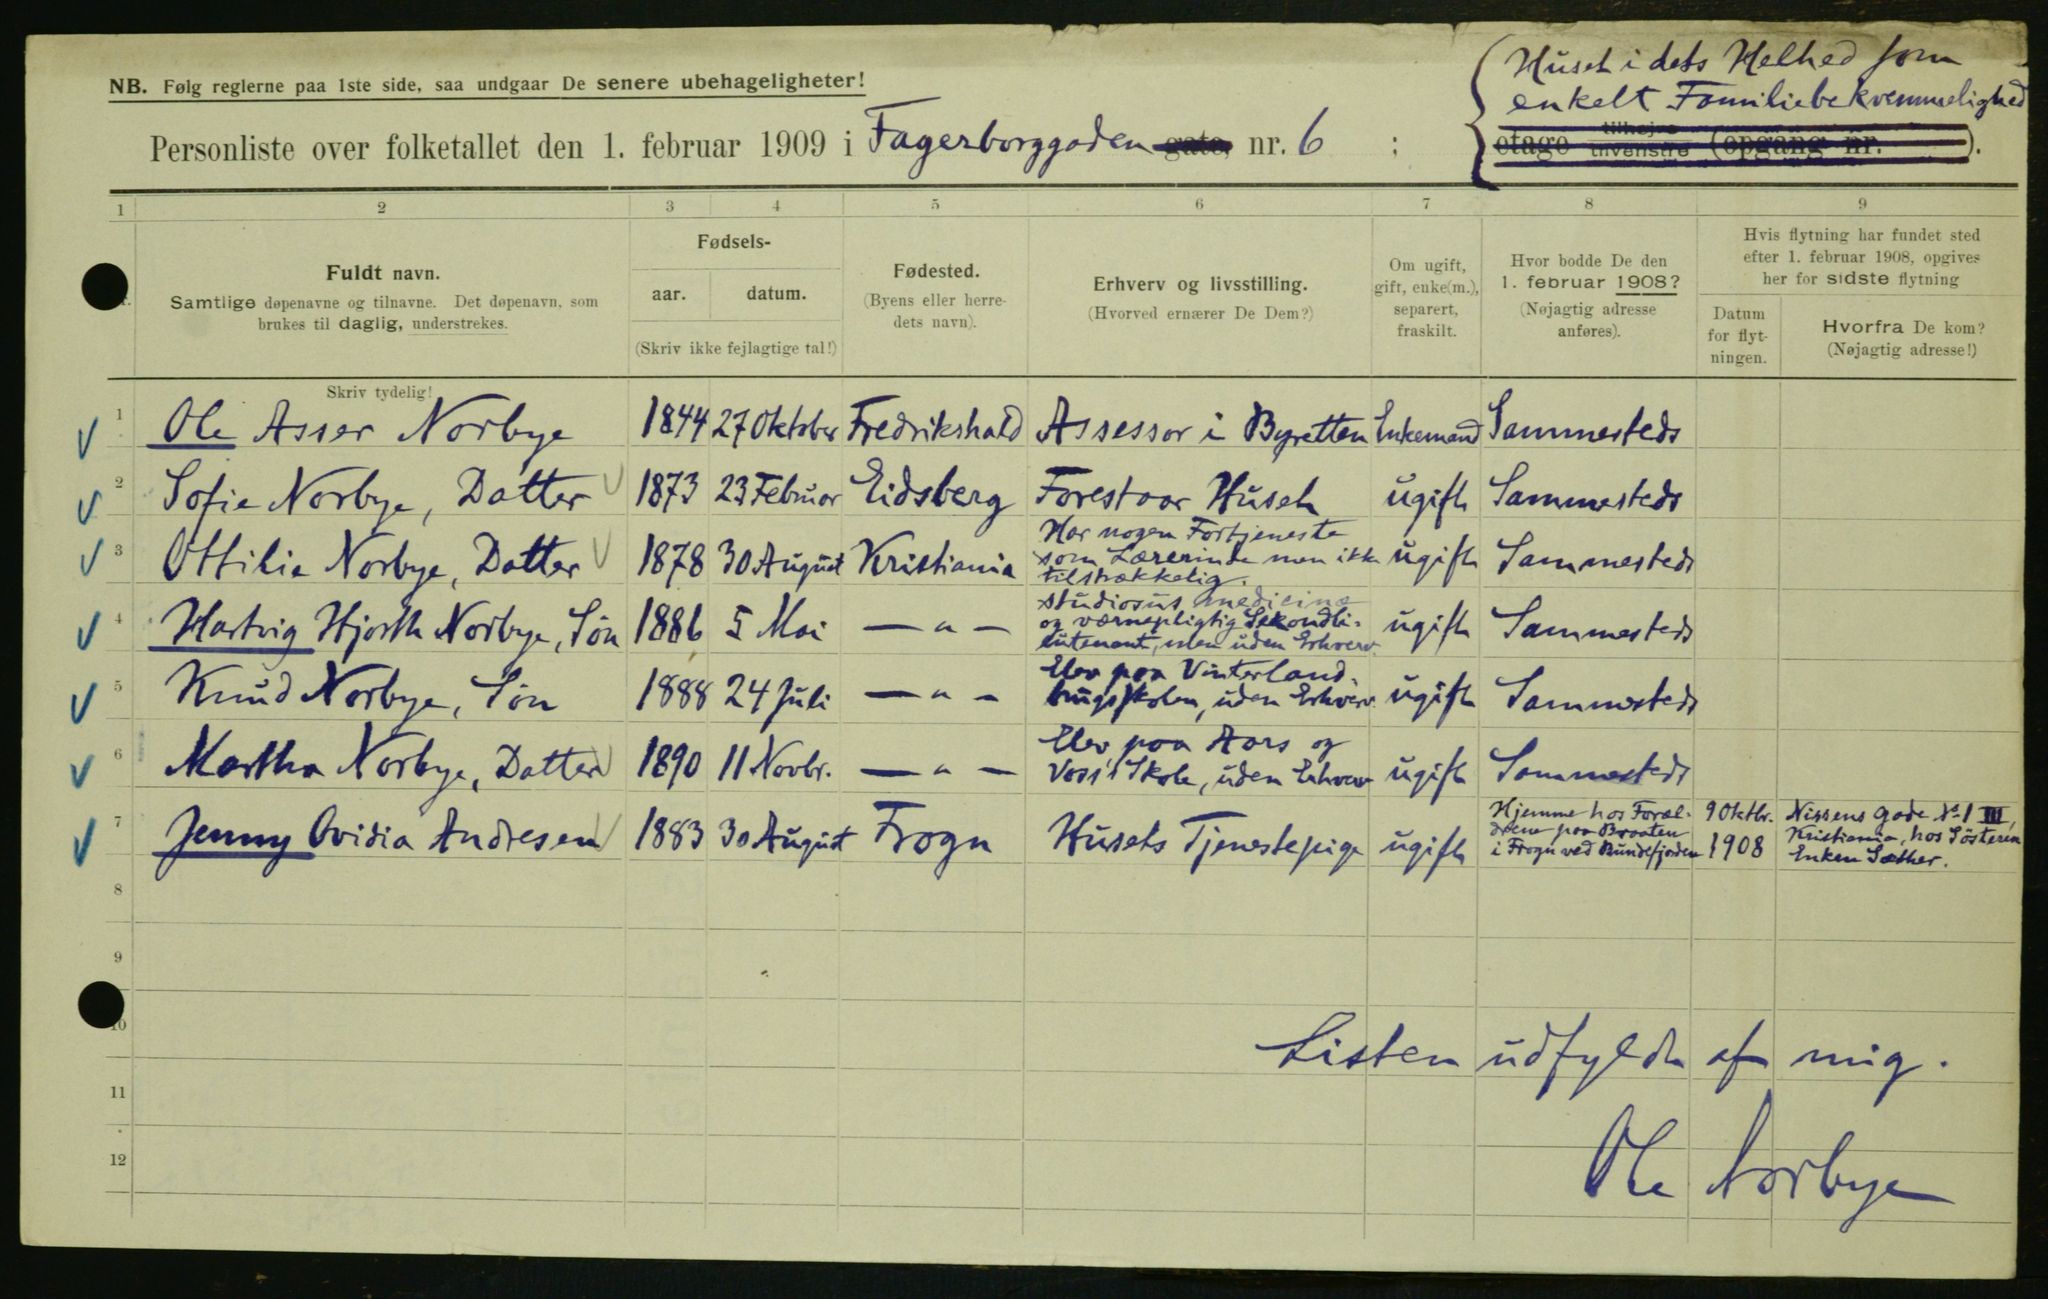 Huset i dets Helhed som
enkelt Familiebekvemmelighed
NB. Følg reglerne paa 1ste side, saa undgaar De senere ubehageligheter!
Personliste over folketallet den 1. februar 1909 i Fagerborggaden gate, nr. 6 ; etage tilhøjre tilvenstre (opgang nr. ).
1 2 3 4 5 6 7 8 9
Fuldt navn.
Samtlige døpenavne og tilnavne. Det døpenavn, som
brukes til daglig, understrekes.
Skriv tydelig!
Fødsels-
aar. datum.
(Skriv ikke fejlagtige tal!)
Fødested.
(Byens eller herre-
dets navn).
Erhverv og livsstilling.
(Hvorved ernærer De Dem?)
Om ugift,
gift, enke(m.),
separert,
fraskilt.
Hvor bodde De den
1. februar 1908?
(Nøjagtig adresse
anføres).
Hvis flytning har fundet sted
efter 1. februar 1908, opgives
her for sidste flytning
Datum
for flyt-
ningen.
Hvorfra De kom?
(Nøjagtig adresse!)
1 Ole Asser Norbye 1844 27 Oktober Fredrikshald Assessor i Byretten Enkemand Sammesteds
2 Sofie Norbye, Datter 1873 23 Februar Eidsberg Forestaar Huset ugift Sammesteds
3 Ottilie Norbye, Datter 1878 30 August Kristiania Har nogen Fortjeneste
som Lærerinde men ikke
tilstrækkelig. ugift Sammesteds
4 Hartvig Hjorth Norbye, Søn 1886 5 Mai — " — studiosus medicinæ
og værnepligtig Sekondlø-
jutenant, men uden Erhverv. ugift Sammesteds
5 Knud Norbye, Søn 1888 24 Juli — " — Elev paa Vinterland-
brugsskolen, uden Erhverv. ugift Sammesteds
6 Martha Norbye, Datter 1890 11 Novbr. — " — Elev paa Aars og
Voss's Skole, uden Erhverv ugift Sammesteds
7 Jenny Ovidia Andresen 1883 30 August Frogn Husets Tjenestepige ugift Hjemme hos Foræl-
drene paa Braaten
i Frogn ved Bundefjorden 9 Oktbr.
1908 Nissens Gade No 1 III,
Kristiania, hos Søsteren
Enken Sæther.
8
9
10
Listen udfyldt af mig.
11
12
Ole Norbye